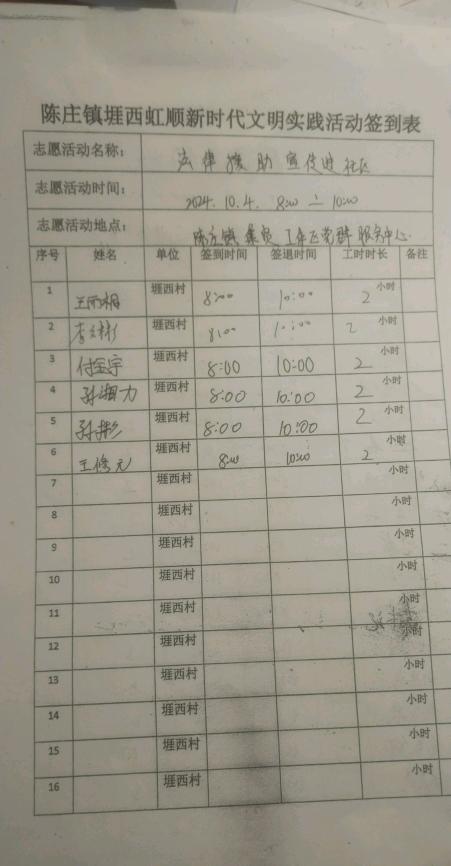 陈庄镇堐西虹顺新时代文明实践活动签到表
志愿活动名称： 法律援助宣传进社区
志愿活动时间： 2024.10.4. 8:00 — 10:00
志愿活动地点： 陈庄镇 工作区党群服务中心
序号 姓名 单位 签到时间 签退时间 工时时长 备注
1 堐西村 8:00 10:00 2 小时
2 堐西村 8:00 10:00 2 小时
3 付宝宇 堐西村 8:00 10:00 2 小时
4 孙湘力 堐西村 8:00 10:00 2 小时
5 孙彬 堐西村 8:00 10:00 2 小时
6 王修元 堐西村 8:00 10:00 2 小时
7 堐西村 小时
8 堐西村 小时
9 堐西村 小时
10 堐西村 小时
11 堐西村 小时
12 堐西村 小时
13 堐西村 小时
14 堐西村 小时
15 堐西村 小时
16 堐西村 小时